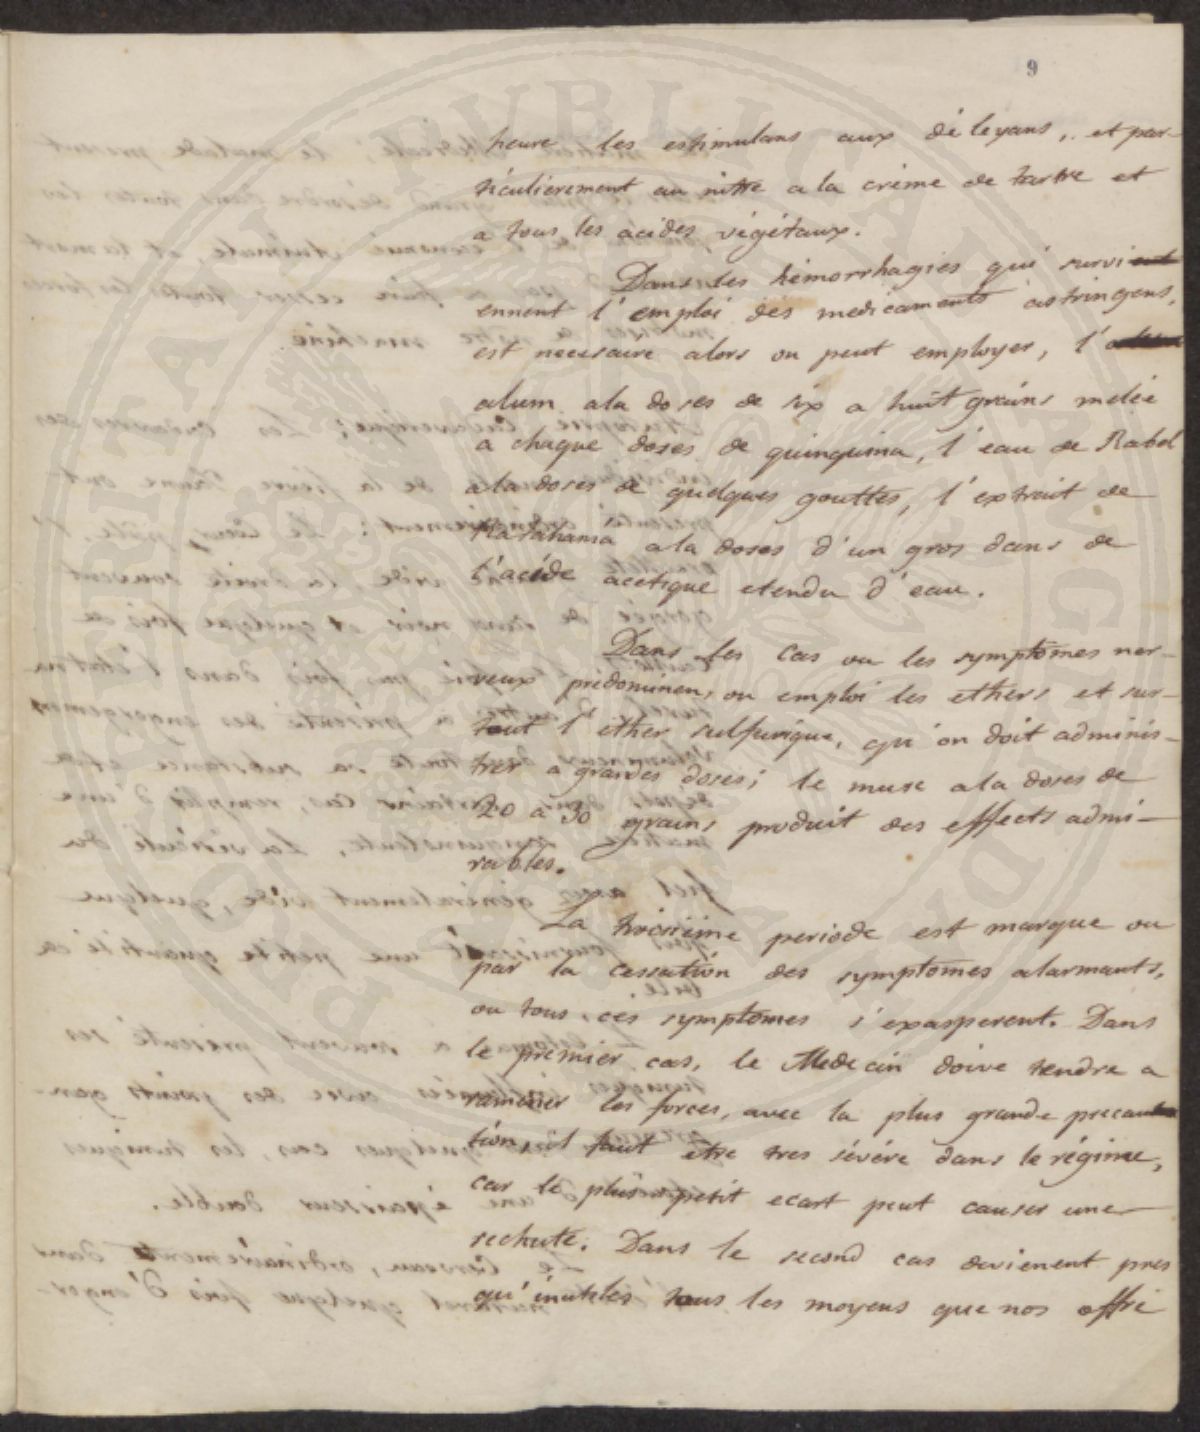 9
heure les estimulans aux déleyans, et par-
ticulierement au nitre a la crème de tartre et
a tous les acides végétaux.
Dans les hémorrhagies qui survi
ennent l'emploi des medicaments astringens,
est necesaire alors on peut employer, l'
alum a la doses de six a huit grains melée
a chaque doses de quinquina, l'eau de Rabel
a la doses de quelques gouttes, l'extrait de
Ratahania a la doses d'un gros dans de
l'acide acetique etendu d'eau.
Dans les cas ou les symptomes ner-
veux predominen, on emploi les ethers et sur-
tout l'ether sulfurique, qu'on doit adminis-
trer a grandes doses; le musc a la doses de
20 a 30 grains produit des effects admi-
rables.
La troisième periode est marque ou
par la cessation des symptomes alarmants,
ou tous ces symptomes s'exasperent. Dans
le premier cas, le Medecin doive tendre a
ramener les forces, avec la plus grande precau
tion, il faut etre tres sévére dans le régime,
car le plus petit ecart peut causer une
rechute. Dans le second cas devienent pres
qu'inutiles tous les moyens que nos offri